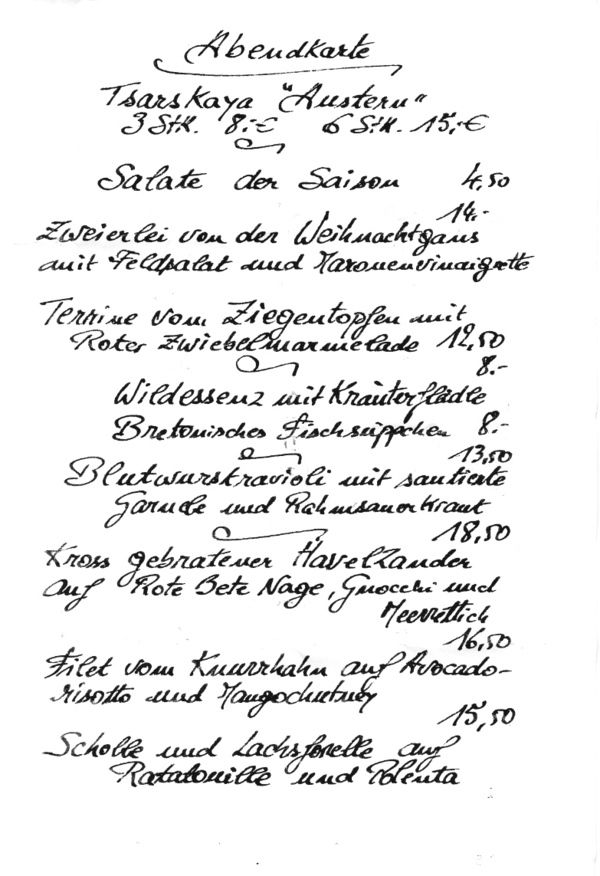 Abendkarte
Tsarskaya "Austern"
3 Stk. 8,-€ 6 Stk. 15,-€
Salate der Saison 4,50
14.-
Zweierlei von der Weihnachtgans
mit Feldsalat und Maronenvinaigrette
Terrine vom Ziegentopfen mit
Roter Zwiebelmarmelade 12,50
8.-
Wildessenz mit Kräuterflädle
Bretonisches Fischsüppchen 8.-
13,50
Blutwurstravioli mit sautierte
Garnele und Rahmsauerkraut
18,50
Kross gebratener Havelzander
auf Rote Bete Nage, Gnocchi und
Meerrettich
16,50
Filet vom Knurrhahn auf Avocado-
risotto und Mangochutney
15,50
Scholle und Lachsforelle auf
Ratatouille und Polenta